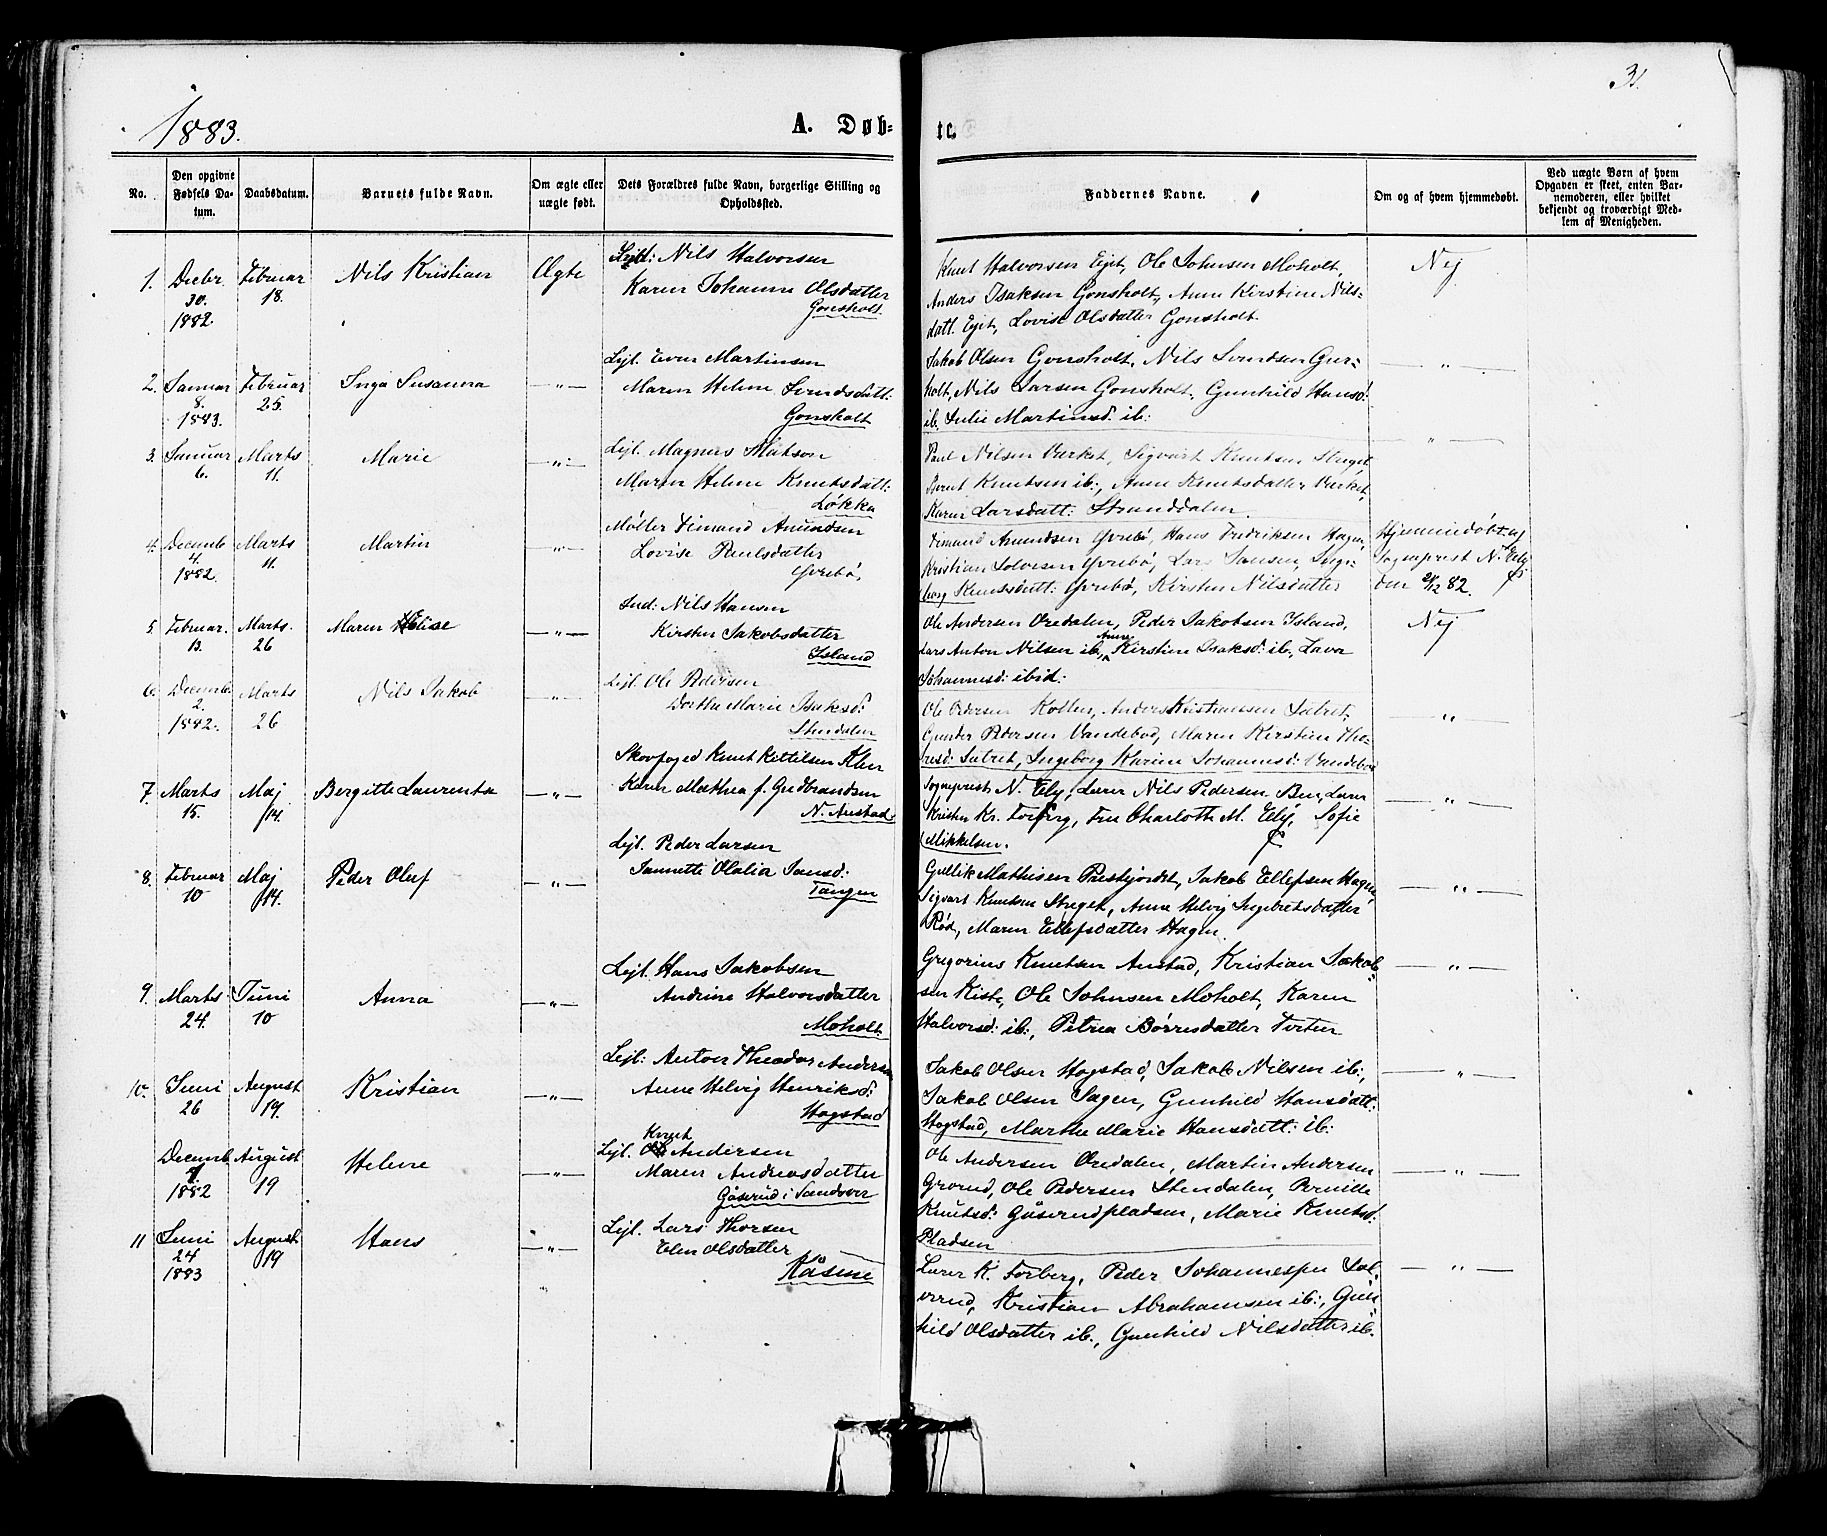 1883.
A. Døb-
No.
Den opgivne
Fødsels Da-
tum.
Daabsdatum.
Barnets fulde Navn.
Om ægte eller
uægte født.
Dets Forældres fulde Navn, borgerlige Stilling og
Opholdssted.
1. Decbr. 30. 1882. Februar 18. Nils Kristian Ægte
Lejl: Nils Halvorsen
Karen Johanne Olsdatter
Gonsholt.
2. Januar 8. 1883. Februar 25. Inga Susanna —"—
Lejl. Even Martinsen
Maren Helene Svendsdatt:
Gonsholt
3. Januar 6. Marts 11. Marie —"—
Lejl. Magnus Matson
Maren Helene Knutsdatt:
Løkka
4. Decemb. 4. 1882. Marts 11. Martin —"—
Møller Timand Amundsen
Lovise Paulsdatter
Yvrebø,
5. Februar. 13. Marts. 26 Maren Elise —"—
Ind: Nils Hansen
Kirsten Jakobsdatter
Island
6. Decemb. 2. 1882. Marts 26 Nils Jakob —"—
Lejl. Ole Pedersen
Dorthe Marie Isaksd:
Stendalen
7. Marts 15. Maj 14. Bergitte Laurentse —"—
Skovfoged Knut Kittilsen
Karen Mathea f. Gudbrandsen
N. Austad.
8. Februar 10 Maj 14. Peder Oluf —"—
Lejl. Peder Larsen
Jannette Olalia Jansd:
Tangen
9. Marts 24. Juni 10 Anna —"—
Lejl. Hans Jakobsen
Andrine Halvorsdatter
Moholt
10. Juni 26 August 19. Kristian —"—
Lejl: Anton Theodor Andersen
Anne Helvig Henriksd:
Hogstad
Decemb. 1882 August 19 Helene —"—
Knut
Lejl. Andersen
Maren Andreasdatter
Gåserud i Sandsver
11 Juni 24 1883 August 19 Hans —"—
Lejl. Lars Thorsen
Elen Olsdatter
Kåsene
te.
31.
Faddernes Navne.
Om og af hvem hjemmedøbt.
Ved uægte Børn af hvem
Opgaven er skeet, enten Bar-
nemoderen, eller hvilket
bekjendt og troværdigt Med-
lem af Menigheden.
Knut Halvorsen Ejet, Ole Johnsen Moholt, Nej
Anders Isaksen Gonsholt, Anne Kirstine Nils-
datt. Ejet, Lovise Olsdatter Gonsholt.
Jakob Olsen Gonsholt, Nils Svendsen Gur- —"—
holt, Nils Larsen Gonsholt, Gunhild Hansd:
ib. Julie Martinsd: ib:
Paul Nilsen Verket, Sigvart Knutsen Steget, —"—
Bernt Knutsen ib:, Anne Knutsdatter Verket,
Karen Larsdatt: Stranddalen.
Timand Amundsen Yvrebø, Hans Fredriksen Hagen, Hjemmedøbt af
Kristian Solvesen Yvrebø, Lars Jansen, Inge- Sogneprest N. Ely
borg Knutsdatt: Yvrebø, Kirsten Nilsdatter den 24/12 82.
Ole Andersen Øredalen, Peder Jakobsen Island, Nej
Lars Anton Nilsen ib., Anne Kirstine Isaksd: ib., Lava
Johannesd: ibid:
Ole Pedersen Kollen, Anders Kristiansen Sætret, —"—
Gunder Pedersen Vandebod, Maren Kirstine Tho-
resd: Sætret, Ingeborg Karine Johannesd: Vandebod
Sogneprest N. Ely, Lærer Nils Pedersen Bue, Lærer —"—
Kristen Kr. Forberg, Fru Charlotte M. Ely, Sofie
Mikkelsen.
Gullik Mathisen Prestjordet, Jakob Ellefsen Hagen, —"—
Sigvart Knutsen Steget, Anne Helvig Ingebretsdatter
Rød, Maren Ellefsdatter Hagen.
Gregorius Knutsen Austad, Kristian Jakob- —"—
sen Kiste, Ole Johnsen Moholt, Karen
Halvorsd: ib:, Petrea Børresdatter Tveten
Jakob Olsen Hogstad, Jakob Nilsen ib:, —"—
Jakob Olsen Sagen, Gunhild Hansdatt:
Hogstad, Marthe Marie Hansdatt: ib:
Ole Andersen Øredalen, Martin Andersen —"—
Grorud, Ole Pedersen Stendalen, Pernille
Knutsd: Gåserudpladsen, Marie Knutsd:
Pladsen
Lærer K. Forberg, Peder Johannessen Sol- —"—
verud, Kristian Abrahamsen ib:, Gun-
hild Olsdatter ib:, Gunhild Nilsdatter ib.